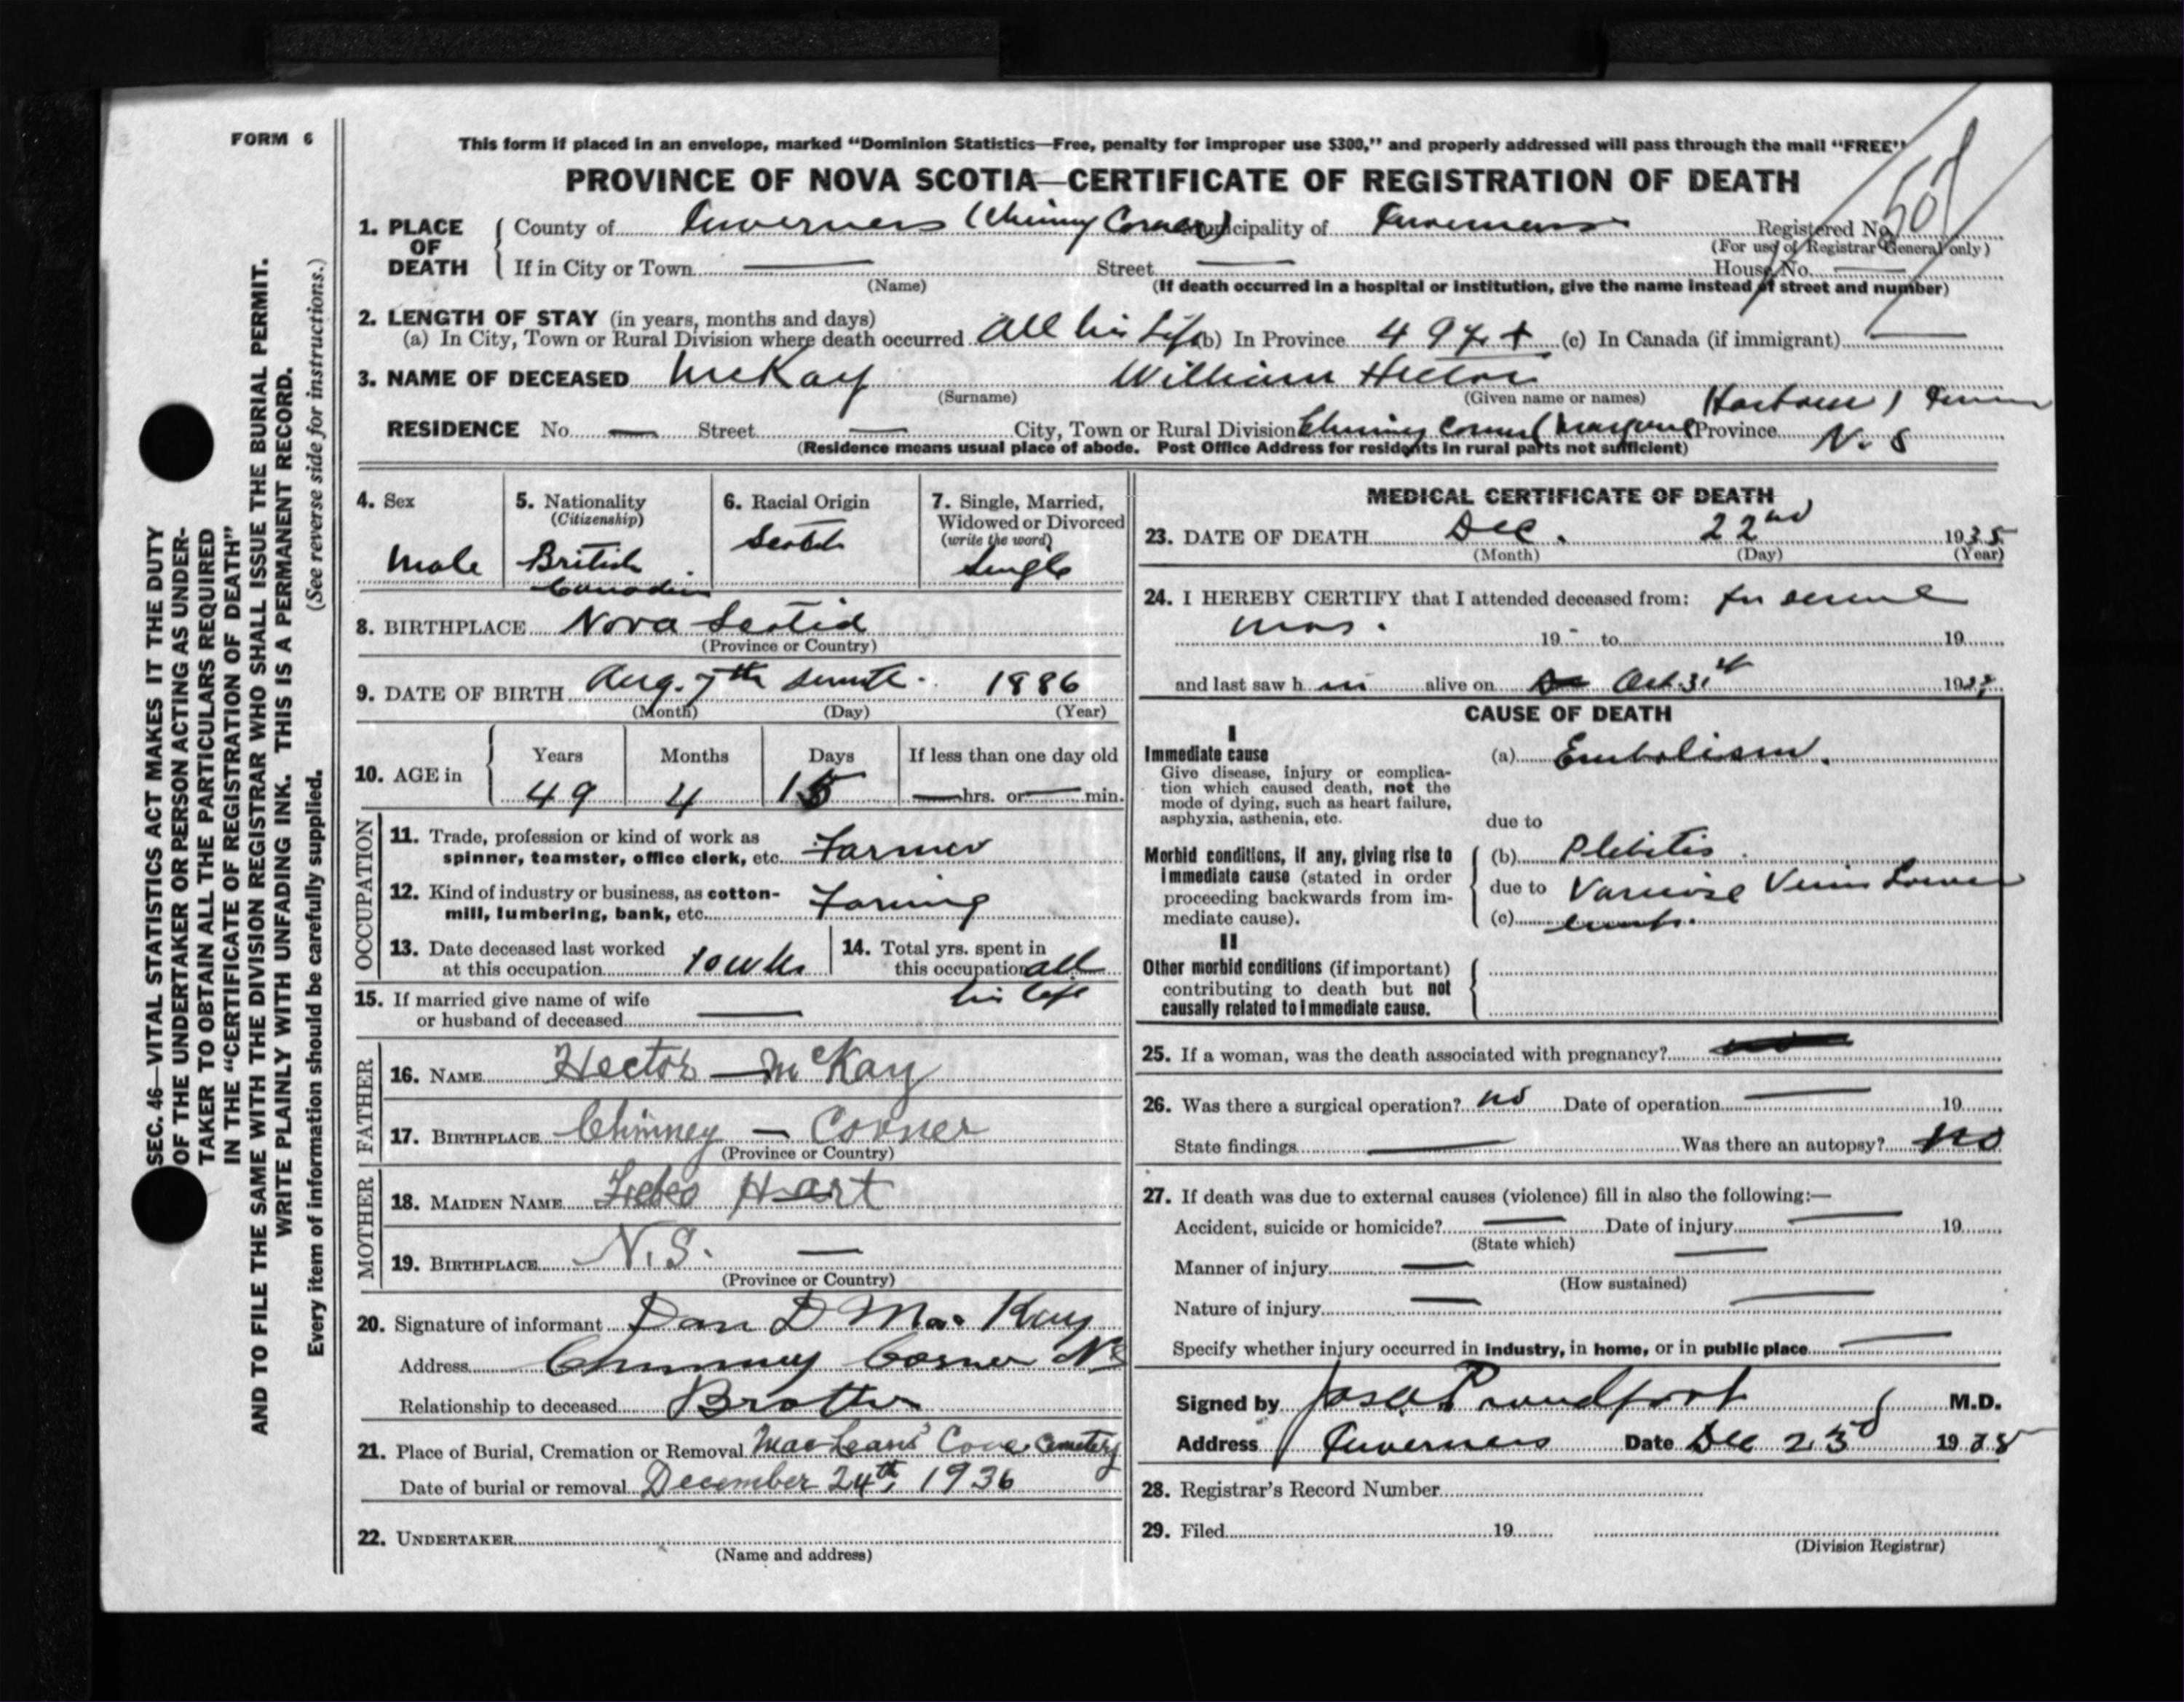 FORM 6
This form if placed in an envelope, marked "Dominion Statistics—Free, penalty for improper use $300," and properly addressed will pass through the mail "FREE"
PROVINCE OF NOVA SCOTIA—CERTIFICATE OF REGISTRATION OF DEATH
1. PLACE OF DEATH
County of Inverness (Chimny Corner) Municipality of Inverness Registered No. 501
(For use of Registrar General only)
If in City or Town — Street — House No. —
(Name) (If death occurred in a hospital or institution, give the name instead of street and number)
2. LENGTH OF STAY (in years, months and days)
(a) In City, Town or Rural Division where death occurred All his Life (b) In Province 49 yr + (c) In Canada (if immigrant) —
3. NAME OF DECEASED McKay William Hector
(Surname) (Given name or names)
Harbour)
RESIDENCE No. — Street — City, Town or Rural Division Chimney Corner (Margaree Province N. S
(Residence means usual place of abode. Post Office Address for residents in rural parts not sufficient)
4. Sex
Male
5. Nationality
(Citizenship)
British
Canadian
6. Racial Origin
Scotch
7. Single, Married, Widowed or Divorced
(write the word)
Single
8. BIRTHPLACE Nova Scotia
(Province or Country)
9. DATE OF BIRTH Aug. 7th 1886
(Month) (Day) (Year)
10. AGE in Years Months Days If less than one day old
49 4 15 — hrs. or — min.
OCCUPATION
11. Trade, profession or kind of work as
spinner, teamster, office clerk, etc. Farmer
12. Kind of industry or business, as cotton-
mill, lumbering, bank, etc. Farming
13. Date deceased last worked
at this occupation 10 wks
14. Total yrs. spent in
this occupation all
his life
15. If married give name of wife
or husband of deceased —
FATHER
16. NAME Hector — McKay
17. BIRTHPLACE Chimney — Corner
(Province or Country)
MOTHER
18. MAIDEN NAME Hart
19. BIRTHPLACE N.S. —
(Province or Country)
20. Signature of informant Dan D MacKay
Address Chimney Corner NS
Relationship to deceased Brother
21. Place of Burial, Cremation or Removal MacLeans' Cove Cemetery
Date of burial or removal December 24th, 1936
22. UNDERTAKER
(Name and address)
MEDICAL CERTIFICATE OF DEATH
23. DATE OF DEATH Dec. 22nd 1935
(Month) (Day) (Year)
24. I HEREBY CERTIFY that I attended deceased from: for several
mos. 19 - to 19
and last saw h im alive on Oct. 31st 193
CAUSE OF DEATH
I
Immediate cause
Give disease, injury or complica-
tion which caused death, not the
mode of dying, such as heart failure,
asphyxia, asthenia, etc.
(a) Embolism.
due to
Morbid conditions, if any, giving rise to
immediate cause (stated in order
proceeding backwards from im-
mediate cause).
(b) Plebitis
due to Varicose Veins Lower
(c) limbs.
II
Other morbid conditions (if important)
contributing to death but not
causally related to immediate cause.
25. If a woman, was the death associated with pregnancy?
26. Was there a surgical operation? no Date of operation — 19
State findings — Was there an autopsy? No
27. If death was due to external causes (violence) fill in also the following:—
Accident, suicide or homicide? — Date of injury — 19
(State which)
Manner of injury — —
(How sustained)
Nature of injury — —
Specify whether injury occurred in industry, in home, or in public place —
Signed by Jas. A. Proudfoot M.D.
Address Inverness Date Dec 23d 1935
28. Registrar's Record Number
29. Filed 19
(Division Registrar)
SEC. 46—VITAL STATISTICS ACT MAKES IT THE DUTY
OF THE UNDERTAKER OR PERSON ACTING AS UNDER-
TAKER TO OBTAIN ALL THE PARTICULARS REQUIRED
IN THE "CERTIFICATE OF REGISTRATION OF DEATH"
AND TO FILE THE SAME WITH THE DIVISION REGISTRAR WHO SHALL ISSUE THE BURIAL PERMIT.
WRITE PLAINLY WITH UNFADING INK. THIS IS A PERMANENT RECORD.
Every item of information should be carefully supplied. (See reverse side for instructions.)